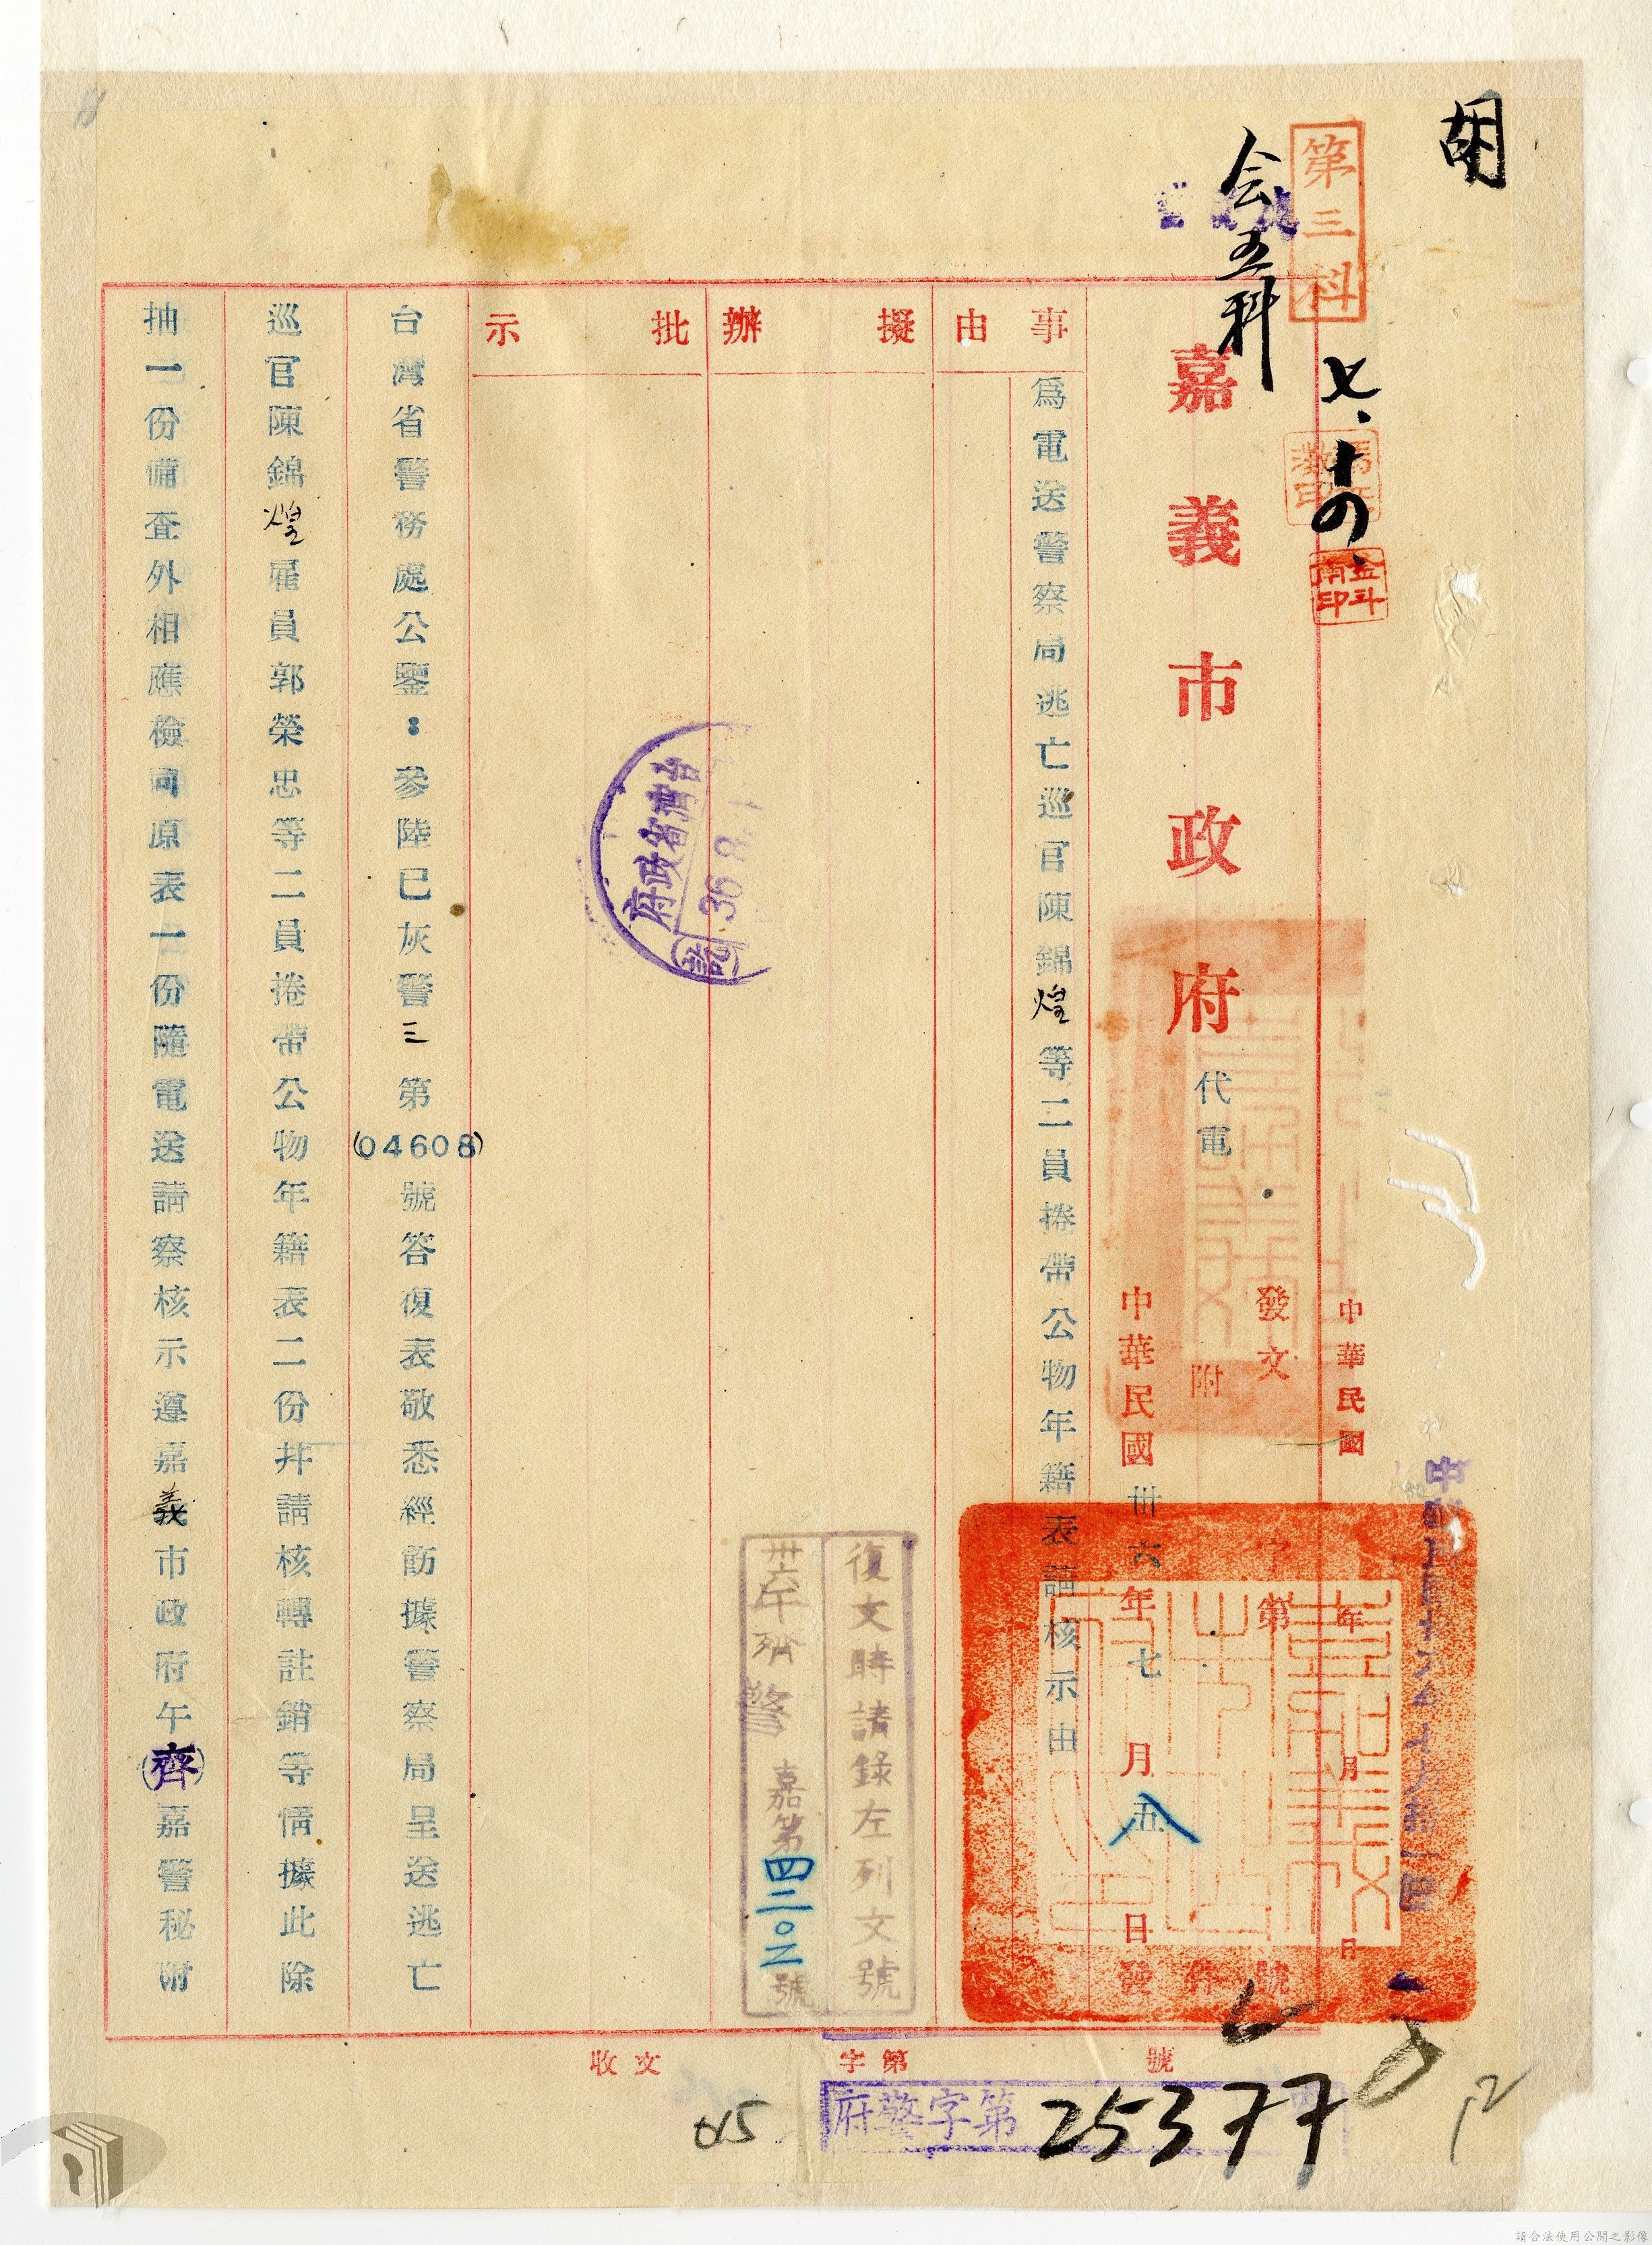 胡
第三科
会五科
七、十四、
嘉義市政府
代電
中華民國 年 月 日
發文
字第 號
附
中華民國卅六年七月五八日發
事由
為電送警察局逃亡巡官陳錦煌等二員捲帶公物年籍表請核示由
擬辦
批示
復文時請錄左列文號
卅六午齊警嘉第四二〇二號
台灣省政府
36.8.
台灣省警務處公鑒：參陸已灰警三第(04608)號答復表敬悉經飭據警察局呈送逃亡
巡官陳錦煌雇員郭榮忠等二員捲帶公物年籍表二份幷請核轉註銷等情據此除
抽一份備查外相應檢同原表一份隨電送請察核示遵嘉義市政府午(齊)嘉警秘附
收文 字第 號
府警字第 25377
45
12
請合法使用公開之影像